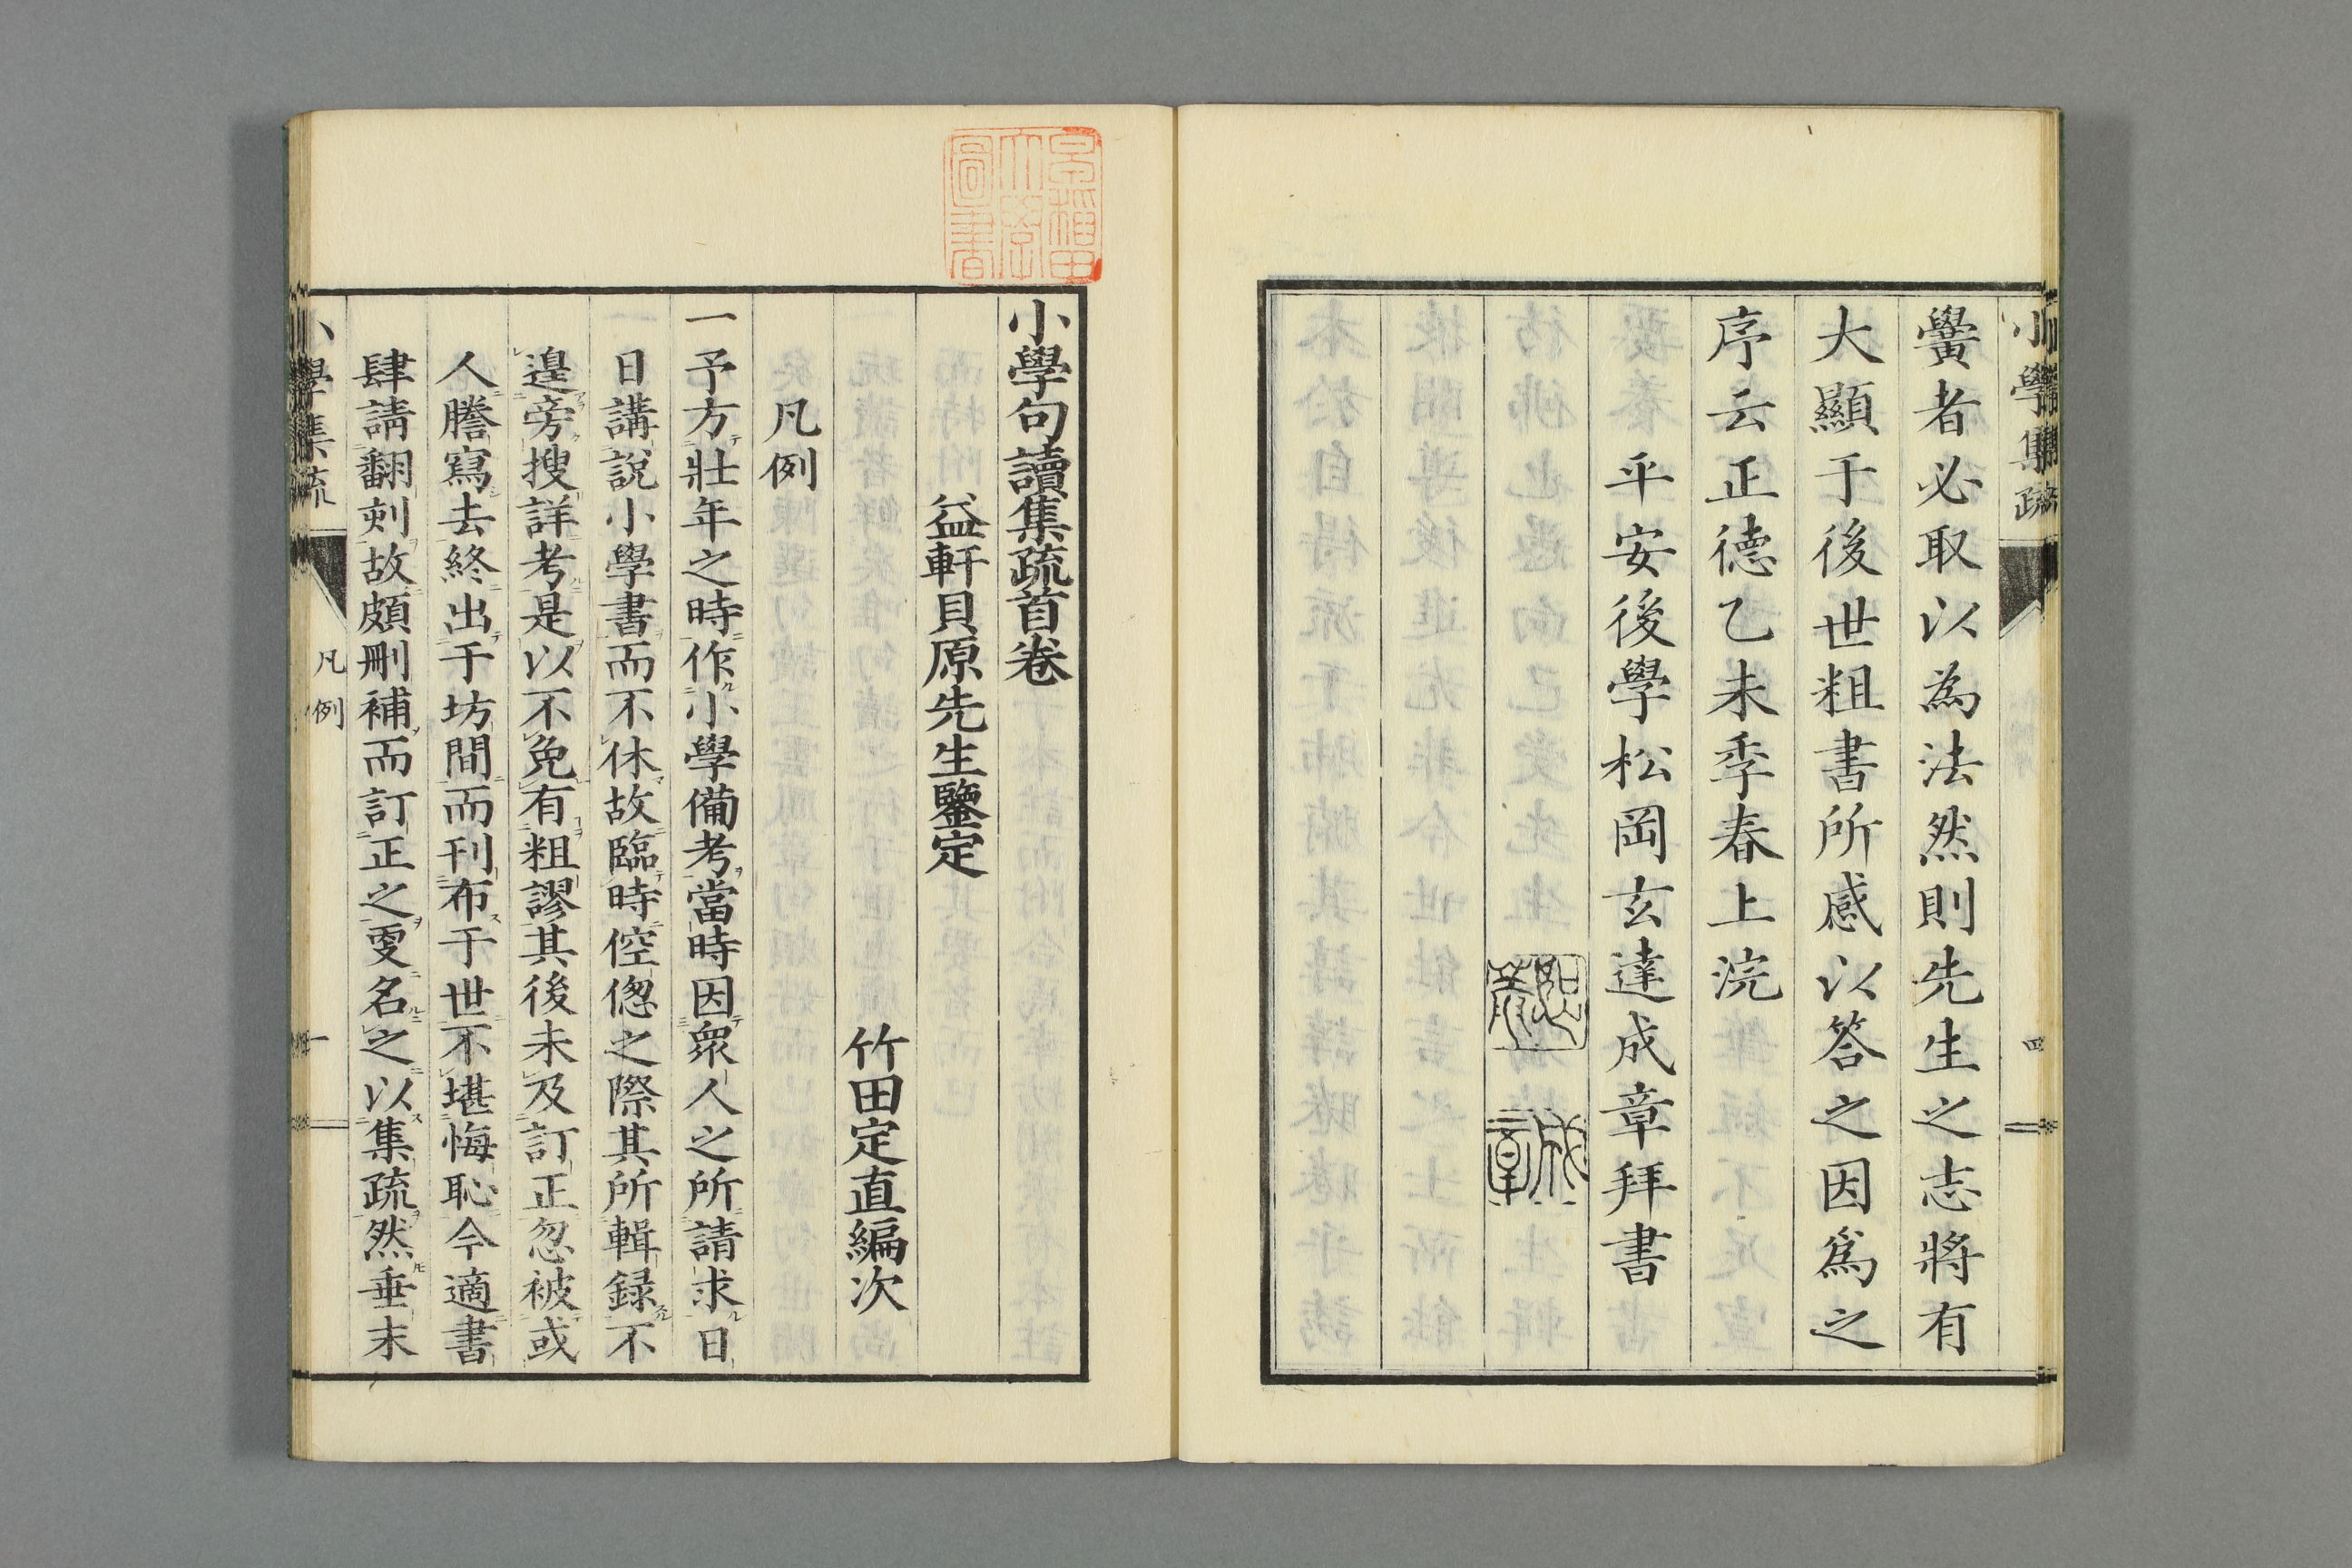 小學集疏
四
黌者必取以為法然則先生之志將有
大顯于後世粗書所感以答之因爲之
序云正德乙未季春上浣
平安後學松岡玄達成章拜書
成章
早稲田大學圖書
小學句讀集疏首卷
益軒貝原先生鑒定
竹田定直編次
凡例
一予方壯年之時作小學備考當時因衆人之所請求日
日講說小學書而不休故臨時倥偬之際其所輯録不
遑旁搜詳考是以不免有粗謬其後未及訂正忽被或
人謄寫去終出于坊間而刊布于世不堪悔恥今適書
肆請翻刻故頗刪補而訂正之更名之以集疏然垂末
小學集疏
凡例
一